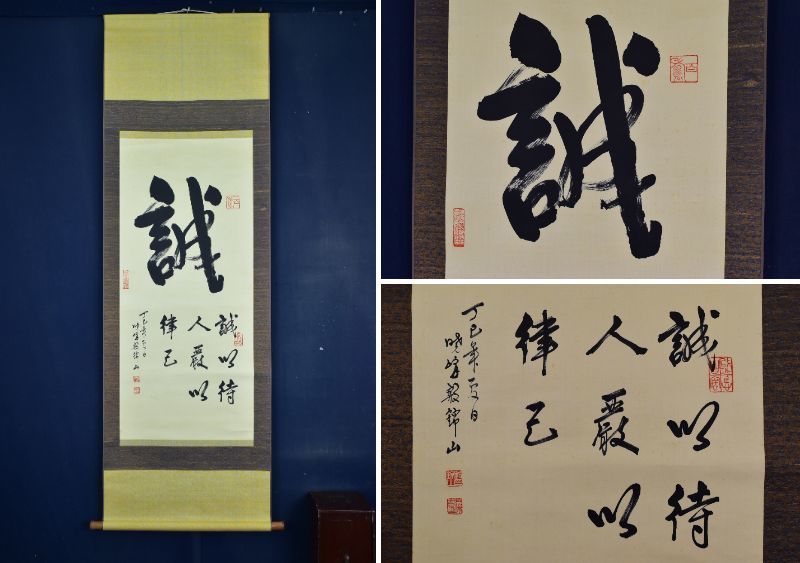 誠
誠以待
人嚴以
律己
丁巳年夏日
曉峰殷錦山
誠
誠以待
人嚴以
律己
丁巳年夏日
曉峰殷錦山